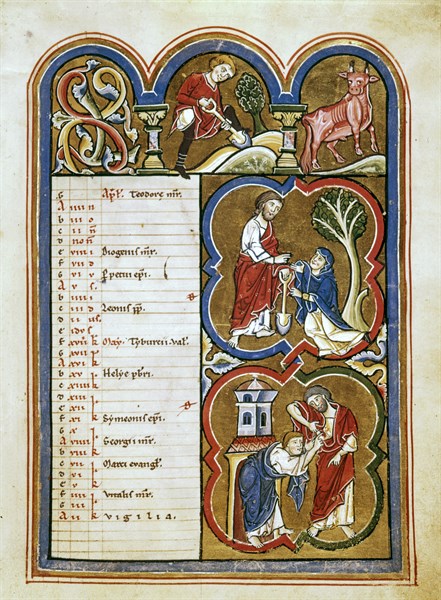 G Apl. Teodore mr.
A iiii n
b iii o
c ii n
d non
e viii i Diogenis mr.
f vii d
g vi v Ppetui epi.
A v s
b iiii
c iii d Leonis pp.
d ii us.
e idus
f xviii k May. Tyburcii. Val.
g xvii
A xvi k
b xv Helye pbri.
c xiiii k
d xiii
e xii
f xi k Symeonis epi.
g x
A viiii Georgii mr.
b viii k
c vii Marci evangl.
d vi
e v k
f iiii Vitalis mr.
g iii k
A ii k vigilia.